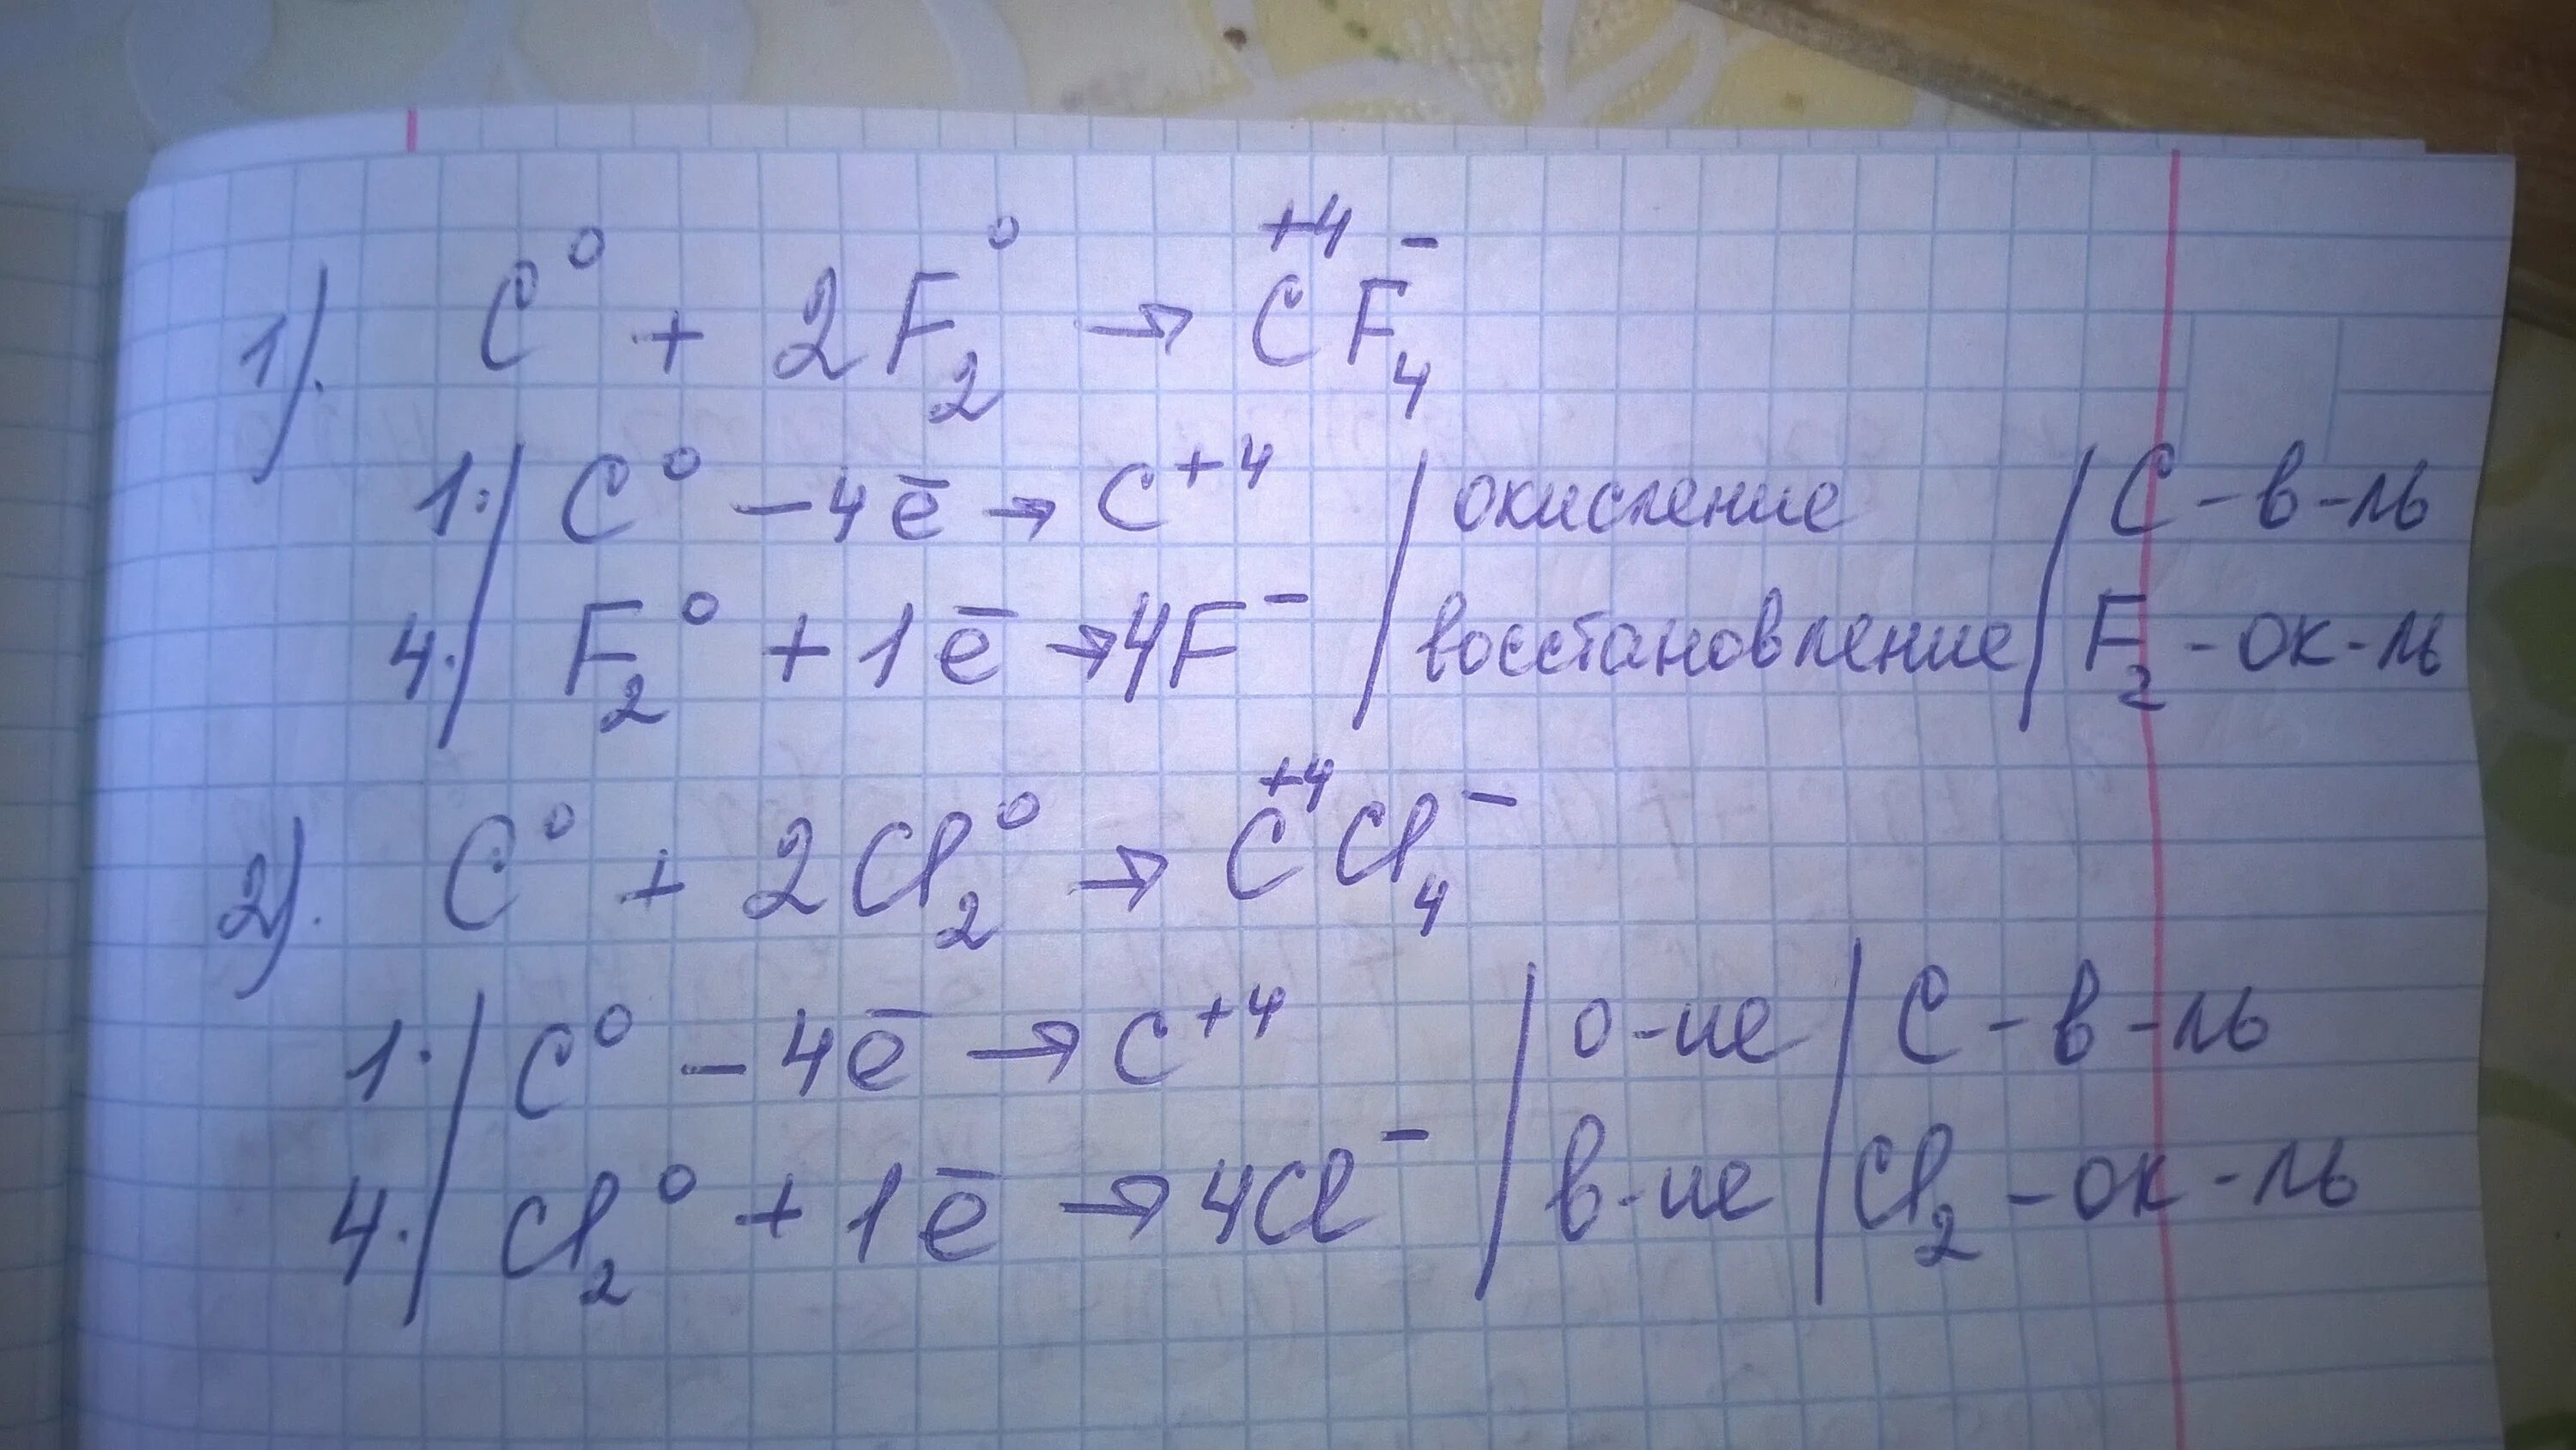 1). C⁰ + 2F₂⁰ → C⁺⁴F₄⁻
1. | C⁰ – 4e̅ → C⁺⁴ | окисление | C – в – ль
4. | F₂⁰ + 1e̅ → 4F⁻ | восстановление | F₂ – ок – ль
2). C⁰ + 2Cl₂⁰ → C⁺⁴Cl₄⁻
1. | C⁰ – 4e̅ → C⁺⁴ | о-ие | C – в – ль
4. | Cl₂⁰ + 1e̅ → 4Cl⁻ | в-ие | Cl₂ – ок – ль